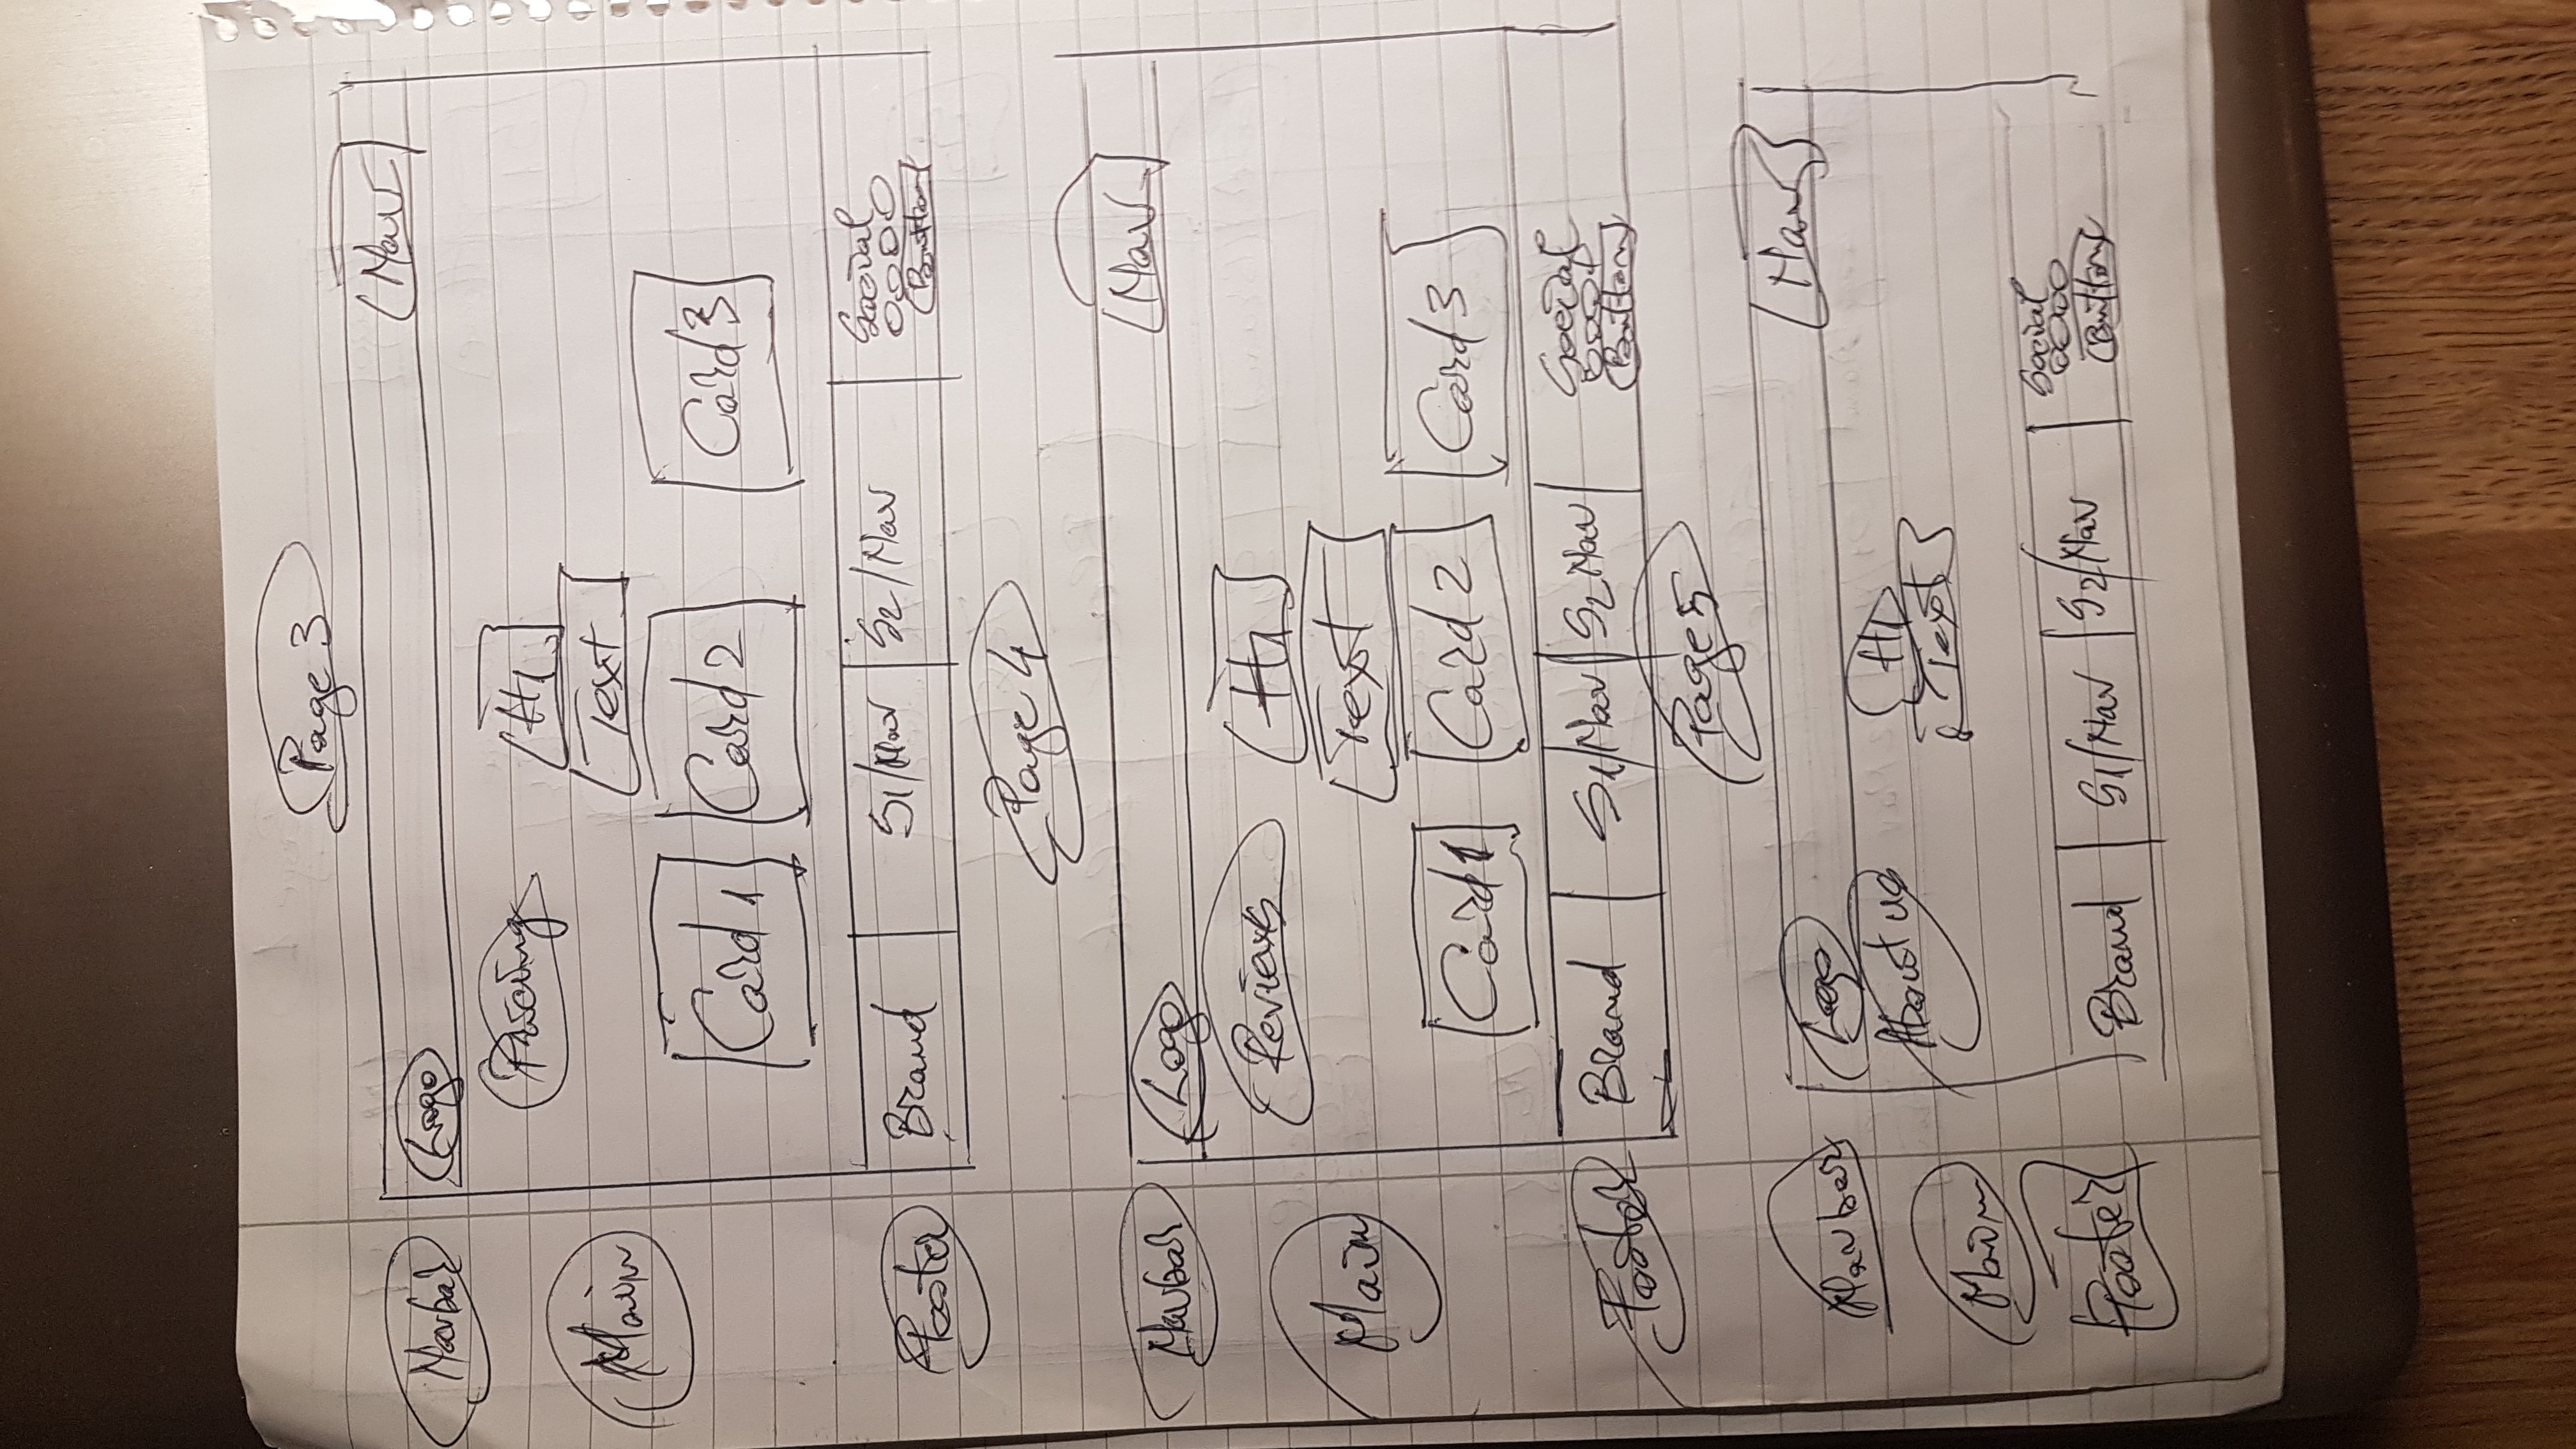 Page 3
Navbar
Logo
Nav
Pricing
H1
Main
Text
Card 1 Card 2 Card 3
Footer
Brand S1/Nav S2/Nav Social
Button
Page 4
Navbar
Logo
Nav
Reviews
H1
Main
Text
Card 1 Card 2 Card 3
Footer
Brand S1/Nav S2 Nav Social
Button
Page 5
Navbar
Logo
Nav
About us
H1
Main
Text
Footer
Brand S1/Nav S2/Nav Social
Button